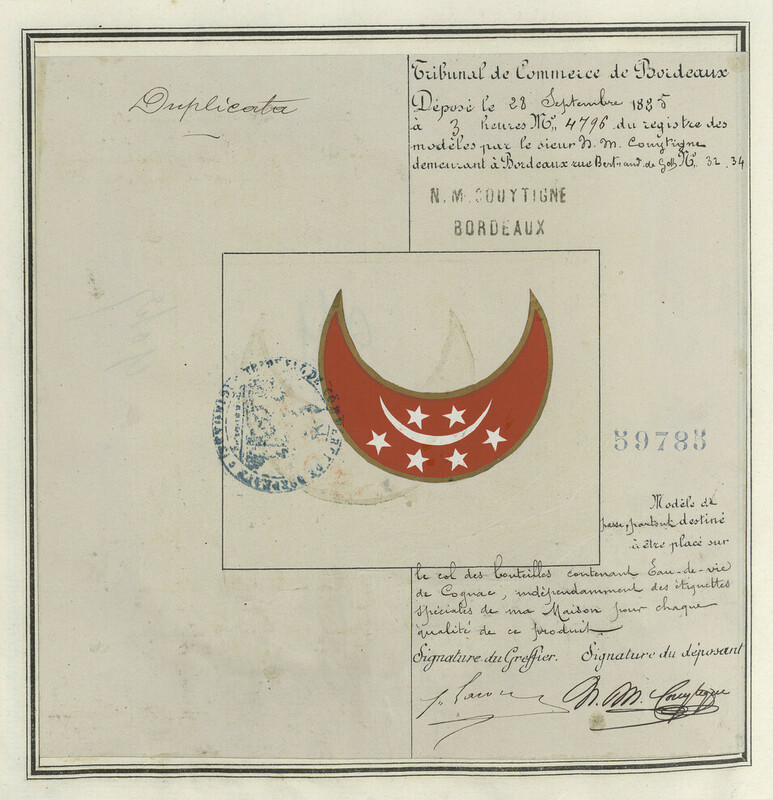 Duplicata
Tribunal de Commerce de Bordeaux
Déposé le 28 Septembre 1885
à 3 heures Nº. 4796 du registre des
modèles par le sieur N. M. Couytigne
demeurant à Bordeaux rue Bertrand de Goth Nº. 32.34
N. M. COUYTIGNE
BORDEAUX
59785
Modèle de
passe, partout destiné
à être placé sur
le col des bouteilles contenant Eau-de-vie
de Cognac, indépendamment des étiquettes
spéciales de ma Maison pour chaque
qualité de ce produit.
Signature du Greffier. Signature du déposant
N. M. Couytigne